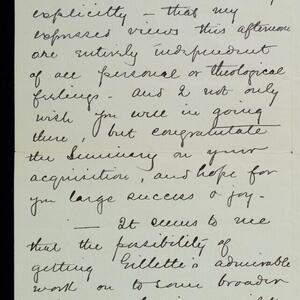 explicitly – that my
expressed views this afternoon
are entirely independent
of all personal or theological
feelings – and I not only
wish you well in going
there, but congratulate
the Seminary on your
acquisition, and hope for
you large success & joy –
– It seems to me
that the possibility of
getting Gillette's admirable
work on to some broader